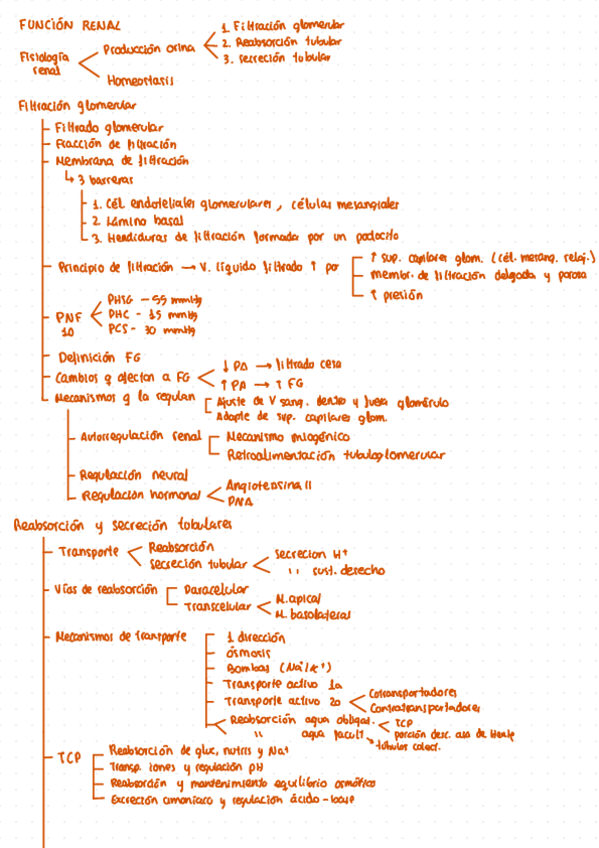 FUNCIÓN RENAL
Fisiología renal
Producción orina
1. Filtración glomerular
2. Reabsorción tubular
3. secreción tubular
Homeostasis
Filtración glomerular
Filtrado glomerular
Fracción de filtración
Membrana de filtración
↳ 3 barreras
1. Cél endoteliales glomerulares, células mesangiales
2. Lámina basal
3. Hendiduras de filtración formada por un podocito
Principio de filtración → V. líquido filtrado ↑ por
↑ sup. capilares glom. (cél. mesang. relaj.)
membr. de filtración delgada y porosa
↑ presión
PNF 10
PHSG - 55 mmHg
PHC - 15 mmHg
PCS - 30 mmHg
Definición FG
Cambios q afectan a FG
↓ PA → filtrado cesa
↑ PA → ↑ FG
Mecanismos q la regulan
Ajuste de V sang. dentro y fuera glomérulo
Adapte de sup. capilares glom.
Autorregulación renal
Mecanismo miogénico
Retroalimentación tubuloglomerular
Regulación neural
Regulación hormonal
Angiotensina II
PNA
Reabsorción y secreción tubulares
Transporte
Reabsorción
Secreción tubular
Secreción H⁺
" sust. desecho
Vías de reabsorción
Paracelular
Transcelular
M. apical
M. basolateral
Mecanismos de transporte
1 dirección
Ósmosis
Bombas (Na⁺/K⁺)
Transporte activo 1a
Transporte activo 2o
Cotransportadores
Contratransportadores
Reabsorción agua obligat.
TCP
porción desc. asa de Henle
" agua facult.
túbulos colect.
TCP
Reabsorción de gluc, nutris y Na⁺
Transp. iones y regulación pH
Reabsorción y mantenimiento equilibrio osmótico
Excreción amoniaco y regulación ácido-base